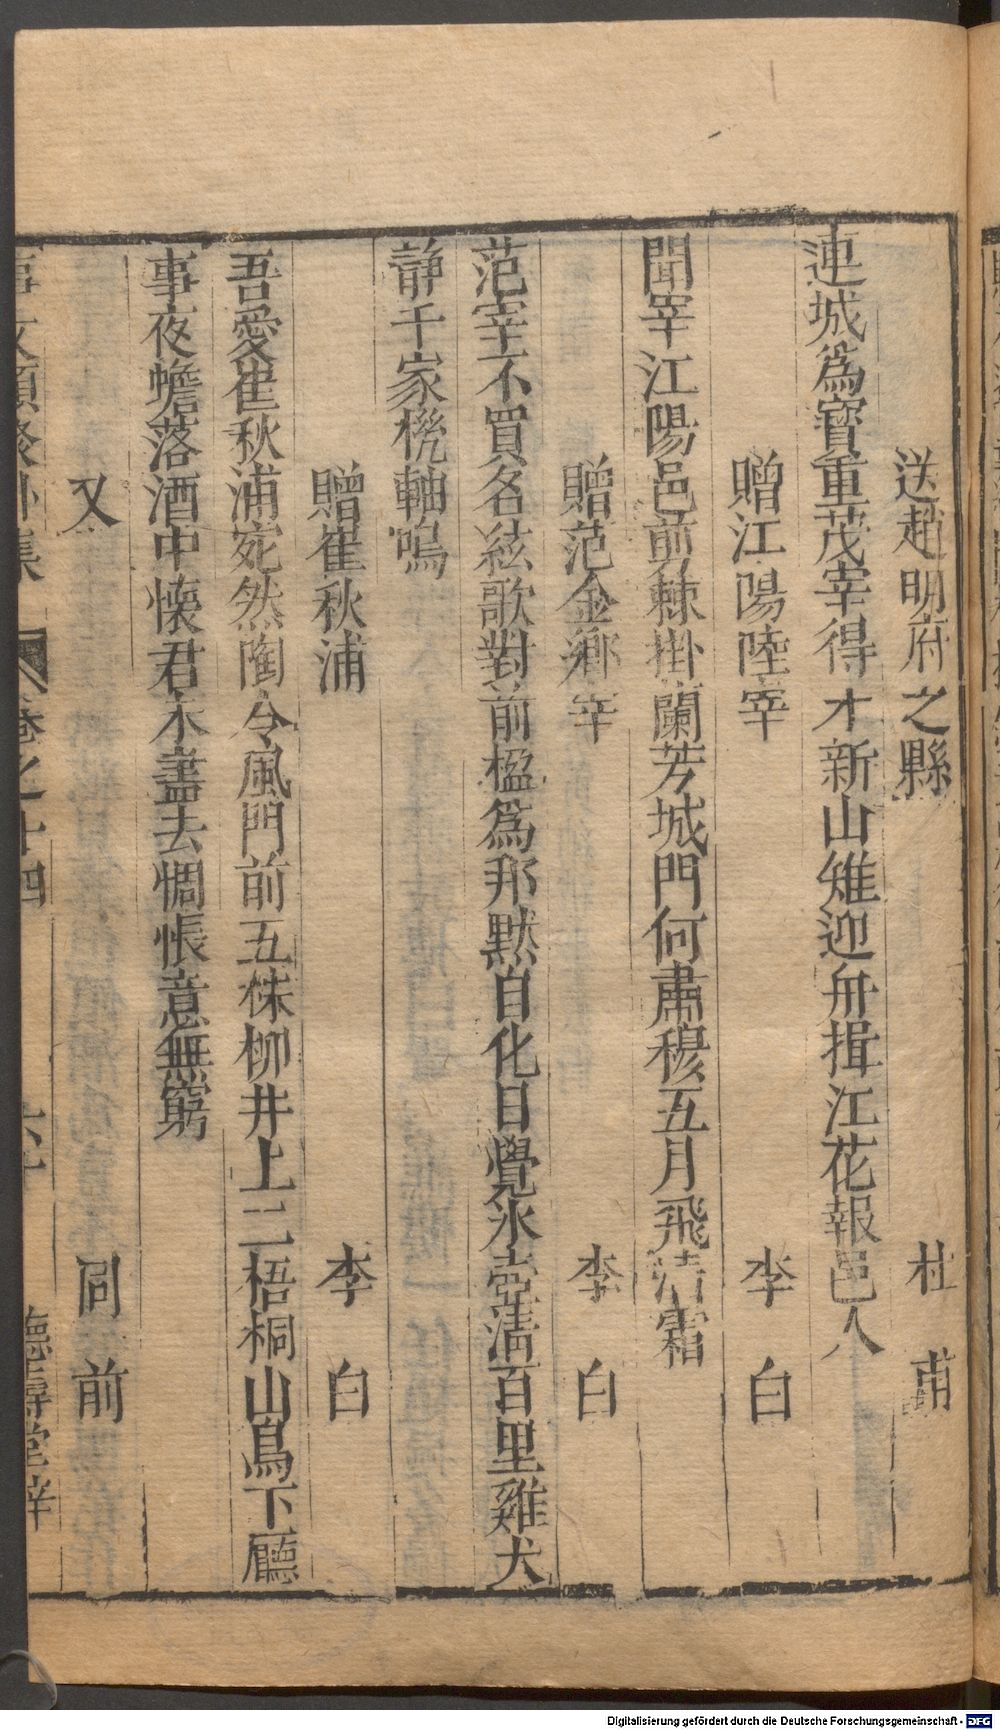 送趙明府之縣 杜甫
連城爲寶重茂宰得才新山雉迎舟揖江花報邑人
贈江陽陸宰 李白
聞宰江陽邑剪棘掛蘭芳城門何肅穆五月飛清霜
贈范金鄉宰 李白
范宰不買名絃歌對前楹爲邦默自化日覺氷壺清百里雞犬
静千家機軸鳴
贈崔秋浦 李白
吾愛崔秋浦宛然陶令風門前五株柳井上二梧桐山鳥下廳
事夜蟾落酒中懷君未盡去惆悵意無窮
又 同前
事文類聚外集 卷之十四 六十 德壽堂梓
Digitalisierung gefördert durch die Deutsche Forschungsgemeinschaft - DFG